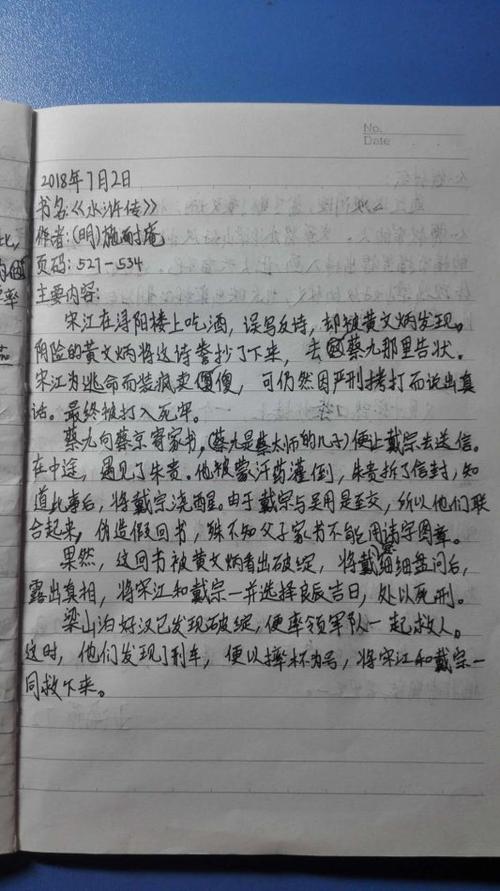 No.
Date
2018年7月2日
书名:《水浒传》
作者:(明)施耐庵
页码:527-534
主要内容:
宋江在浔阳楼上吃酒,误写反诗,却被黄文炳发现。
阴险的黄文炳将这诗誊抄了下来,去蔡九那里告状。
宋江为逃命而装疯卖傻,可仍然因严刑拷打而说出真
话。最终被打入死牢。
蔡九向蔡京寄家书,(蔡九是蔡太师的儿子)便让戴宗去送信。
在中途,遇见了朱贵。他被蒙汗药灌倒,朱贵拆了信封,知
道此事后,将戴宗浇醒。由于戴宗与吴用是至交,所以他们联
合起来,伪造假回书,殊不知父子家书不能用讳字图章。
果然,这回书被黄文炳看出破绽,将戴细细盘问后,
露出真相,将宋江和戴宗一并选择良辰吉日,处以死刑。
梁山泊好汉已发现破绽,便率领军队一起救人。
这时,他们发现了刑车,便以摔杯为号,将宋江和戴宗一
同救下来。